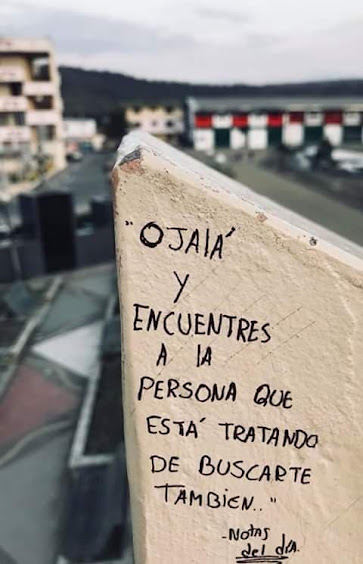 "OJALÁ
Y
ENCUENTRES
A LA
PERSONA QUE
ESTÁ TRATANDO
DE BUSCARTE
TAMBIEN.."
-NOTAS
del día.